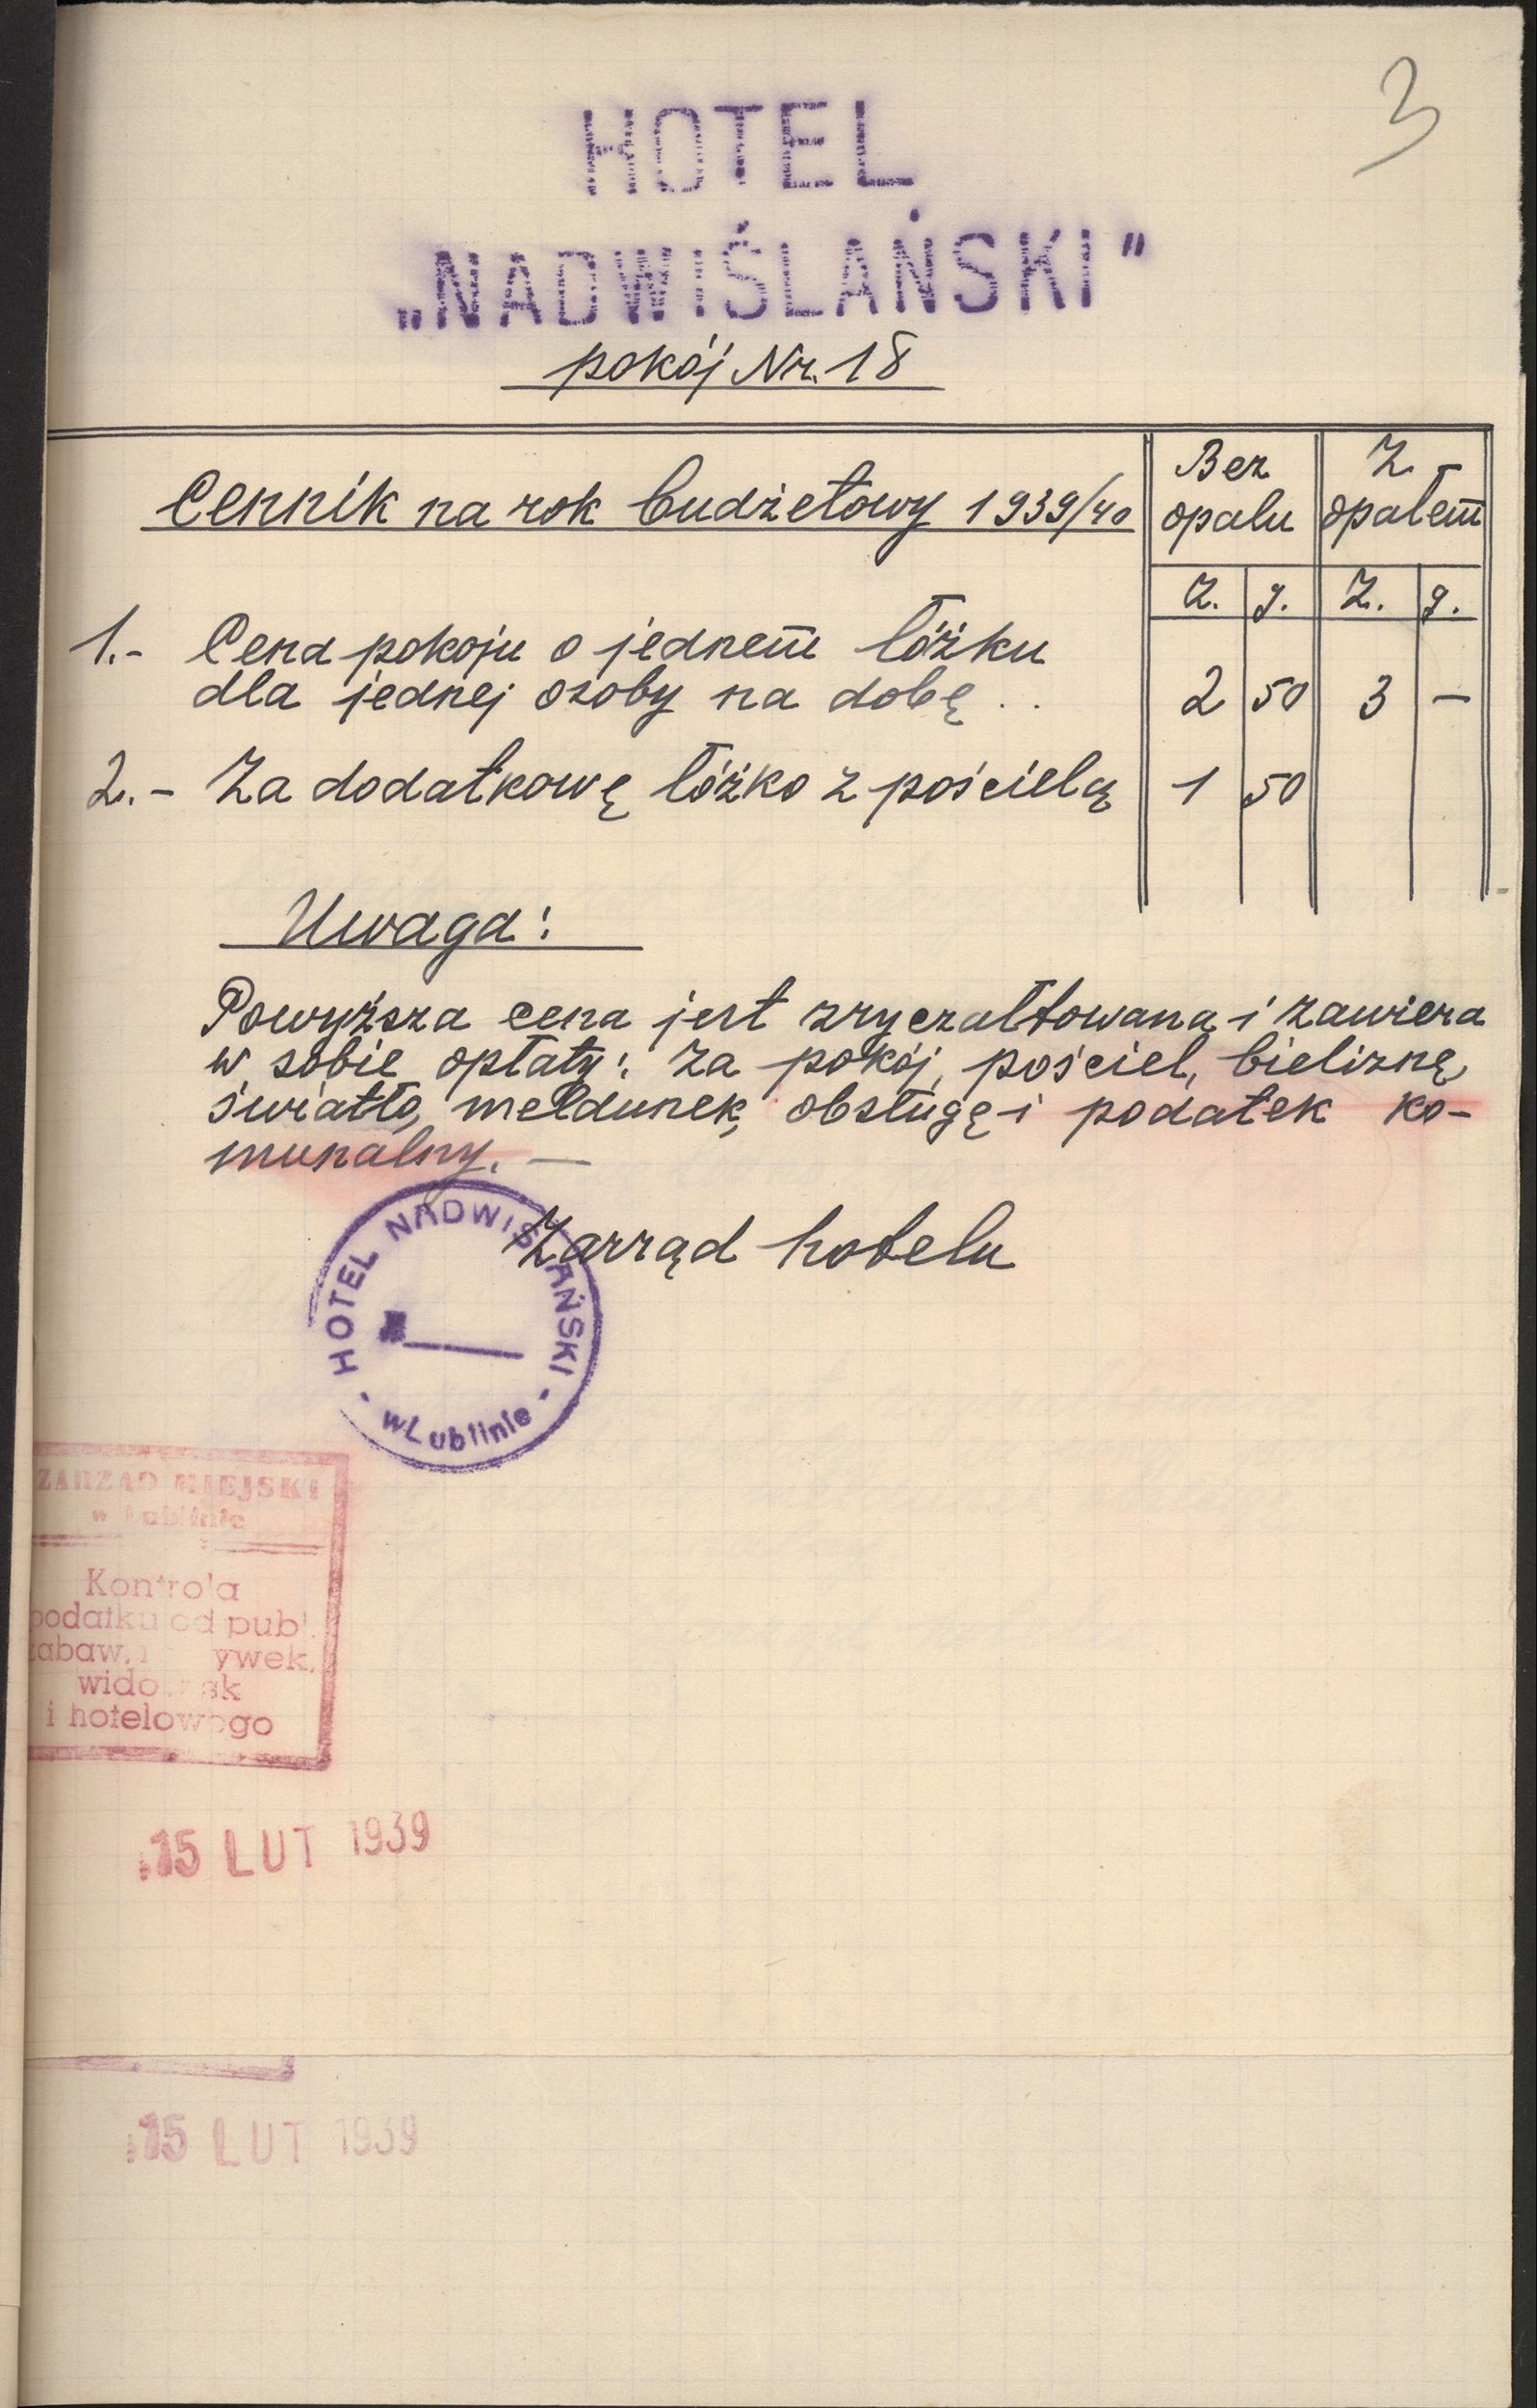 3
HOTEL
„NADWIŚLAŃSKI"
pokój Nr. 18
Cennik na rok budżetowy 1939/40
Bez opalu
Z opałem
Z. g. Z. g.
1.- Cena pokoju o jednem łóżku
dla jednej osoby na dobę . . 2 50 3 —
2.- Za dodatkowę łóżko z pościelą 1 50
Uwaga:
Powyższa cena jest zryczałtowaną i zawiera
w sobie opłaty: za pokój, pościel, bieliznę,
światło, meldunek, obsługę i podatek ko-
munalny. —
Zarząd hotelu
HOTEL NADWIŚLAŃSKI
- w Lublinie -
ZARZĄD MIEJSKI
w Lublinie
Kontrola
podatku od publ.
zabaw,
i hotelowego
15 LUT 1939
15 LUT 1939